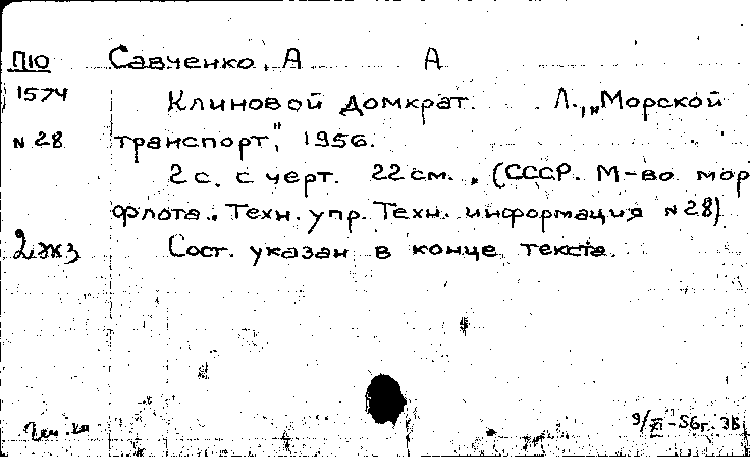 П10 Савченко, А А
1574 Клиновой домкрат. Л., „Морской
N 28 транспорт", 1956.
2 с. с черт. 22 см. (СССР. М-во мор
флота. Техн. упр. Техн. информация N 28).
2 экз Сост. указан в конце текста.
9/XI-56г. ЗВ